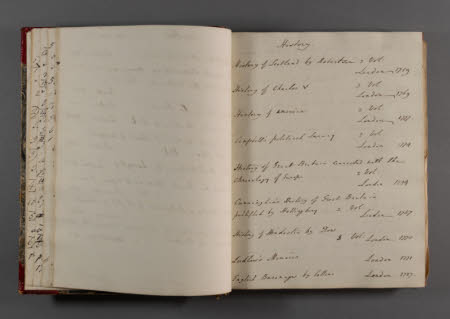 History
History of Scotland by Robertson 2 Vol
London 1769
History of Charles V 2 Vol
London 1769
History of America 2 Vol
London 1777
political Survey 2 Vol
London 1774
History of Great Britain connected with the
Chronology of Europe 2 Vol
London 1794
Cunningham's History of Great Britain
published by Hollingbery 2 Vol
London 1787
History of Hindostan by Dow
3 Vol London 1770
Ludlow's Memoirs London 1771
English Baronage by Collins London 1727